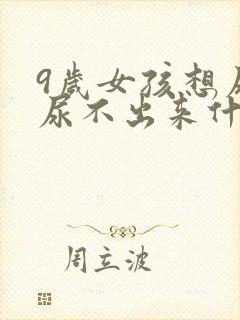 9歲女孩想尿
尿不出來什
周立波